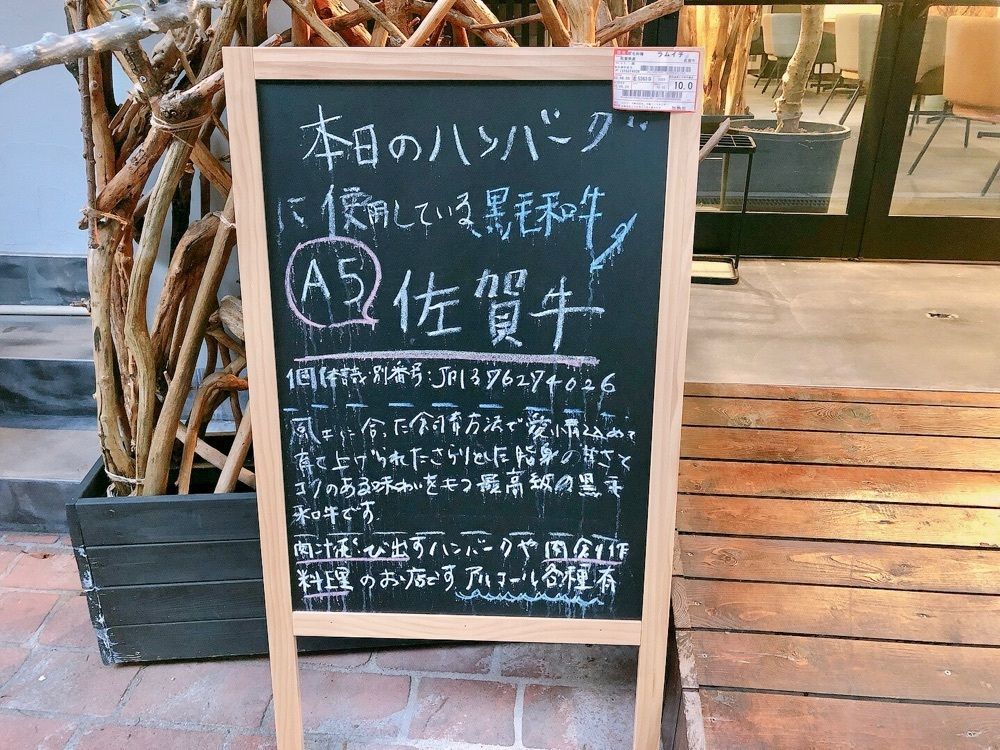 ラムイチ
10.0
本日のハンバーグ
に使用している黒毛和牛
A5 佐賀牛
個体識別番号:JP1396294026
風土に合った飼育方法で愛情込めて
育て上げられたさらりとした脂身の甘さと
コクのある味わいをもつ最高級の黒毛
和牛です
肉汁飛び出すハンバーグや肉創作
料理のお店です アルコール各種有